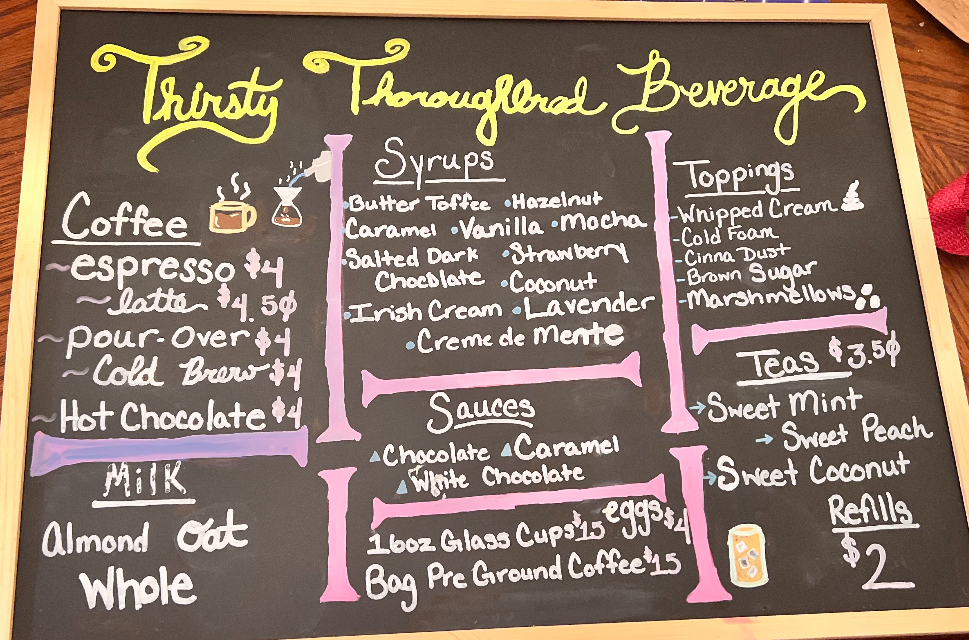 Thirsty Thoroughbred Beverage
Coffee
~espresso $4
~latte $4.5¢
~Pour-Over $4
~Cold Brew $4
~Hot Chocolate $4
Milk
Almond Oat
Whole
Syrups
•Butter Toffee •Hazelnut
Caramel •Vanilla •Mocha
•Salted Dark •Strawberry
Chocolate •Coconut
•Irish Cream •Lavender
•Creme de Mente
Sauces
▲Chocolate ▲Caramel
▲White Chocolate
eggs $4
16oz Glass Cups $15
Bag Pre Ground Coffee $15
Toppings
-Whipped Cream
-Cold Foam
-Cinna Dust
-Brown Sugar
-Marshmellows
Teas $3.5¢
→Sweet Mint
→Sweet Peach
→Sweet Coconut
Refills
$2